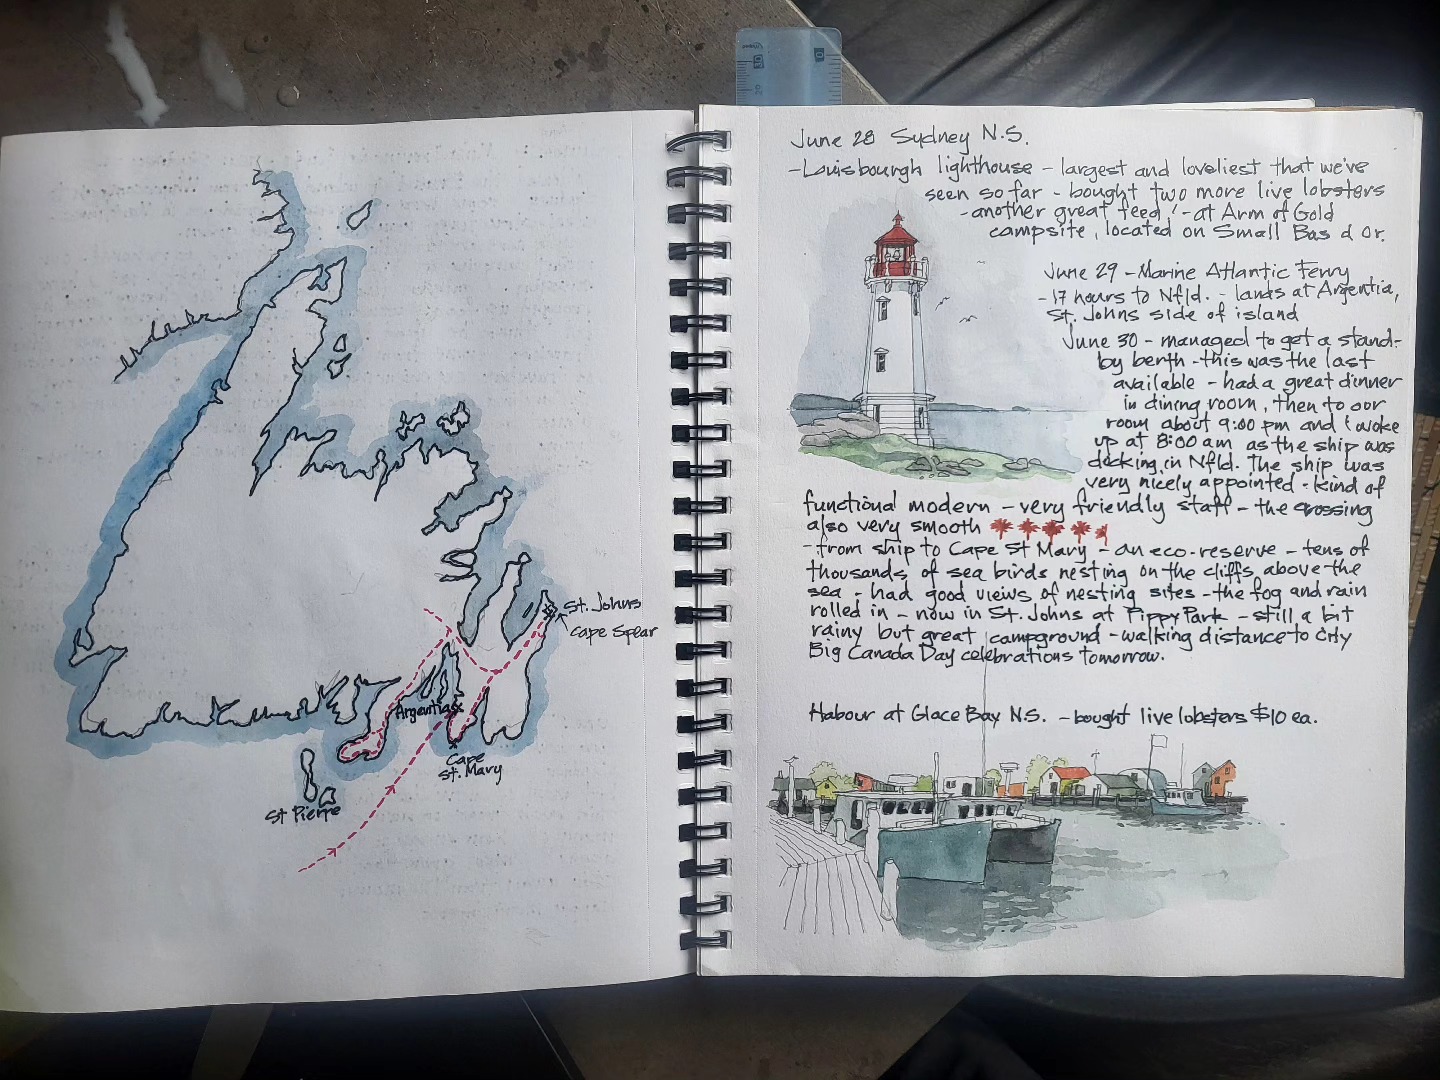 St. Johns
Cape Spear
Argentia
Cape
St. Mary
St Pierre
June 28 Sydney N.S.
-Louisbourgh lighthouse - largest and loveliest that we've
seen so far - bought two more live lobsters
-another great feed! - at Arm of Gold
campsite, located on Small Bas d Or.
June 29 - Marine Atlantic Ferry
-17 hours to Nfld. - lands at Argentia,
St. Johns side of island
June 30 - managed to get a stand-
by berth - this was the last
available - had a great dinner
in dining room, then to our
room about 9:00 pm and I woke
up at 8:00 am as the ship was
docking in Nfld. The ship was
very nicely appointed - kind of
functional modern - very friendly staff - the crossing
also very smooth
-from ship to Cape St Mary - an eco-reserve - tens of
thousands of sea birds nesting on the cliffs above the
sea - had good views of nesting sites - the fog and rain
rolled in - now in St. Johns at Pippy Park - still a bit
rainy but great campground - walking distance to city
Big Canada Day celebrations tomorrow.
Habour at Glace Bay N.S. - bought live lobsters $10 ea.